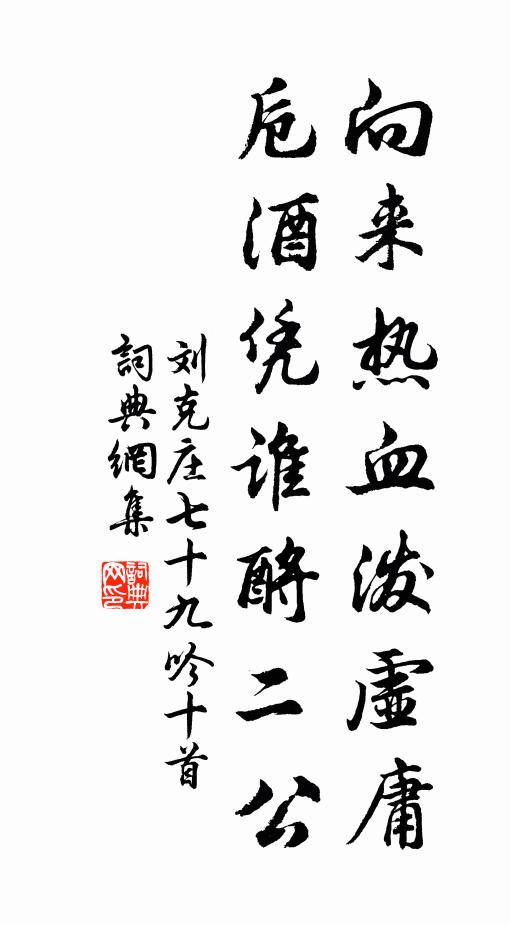 向来热血泼虚庸
卮酒凭谁酹二公
刘克庄七十九吟十首
詞典網集
詞典网印